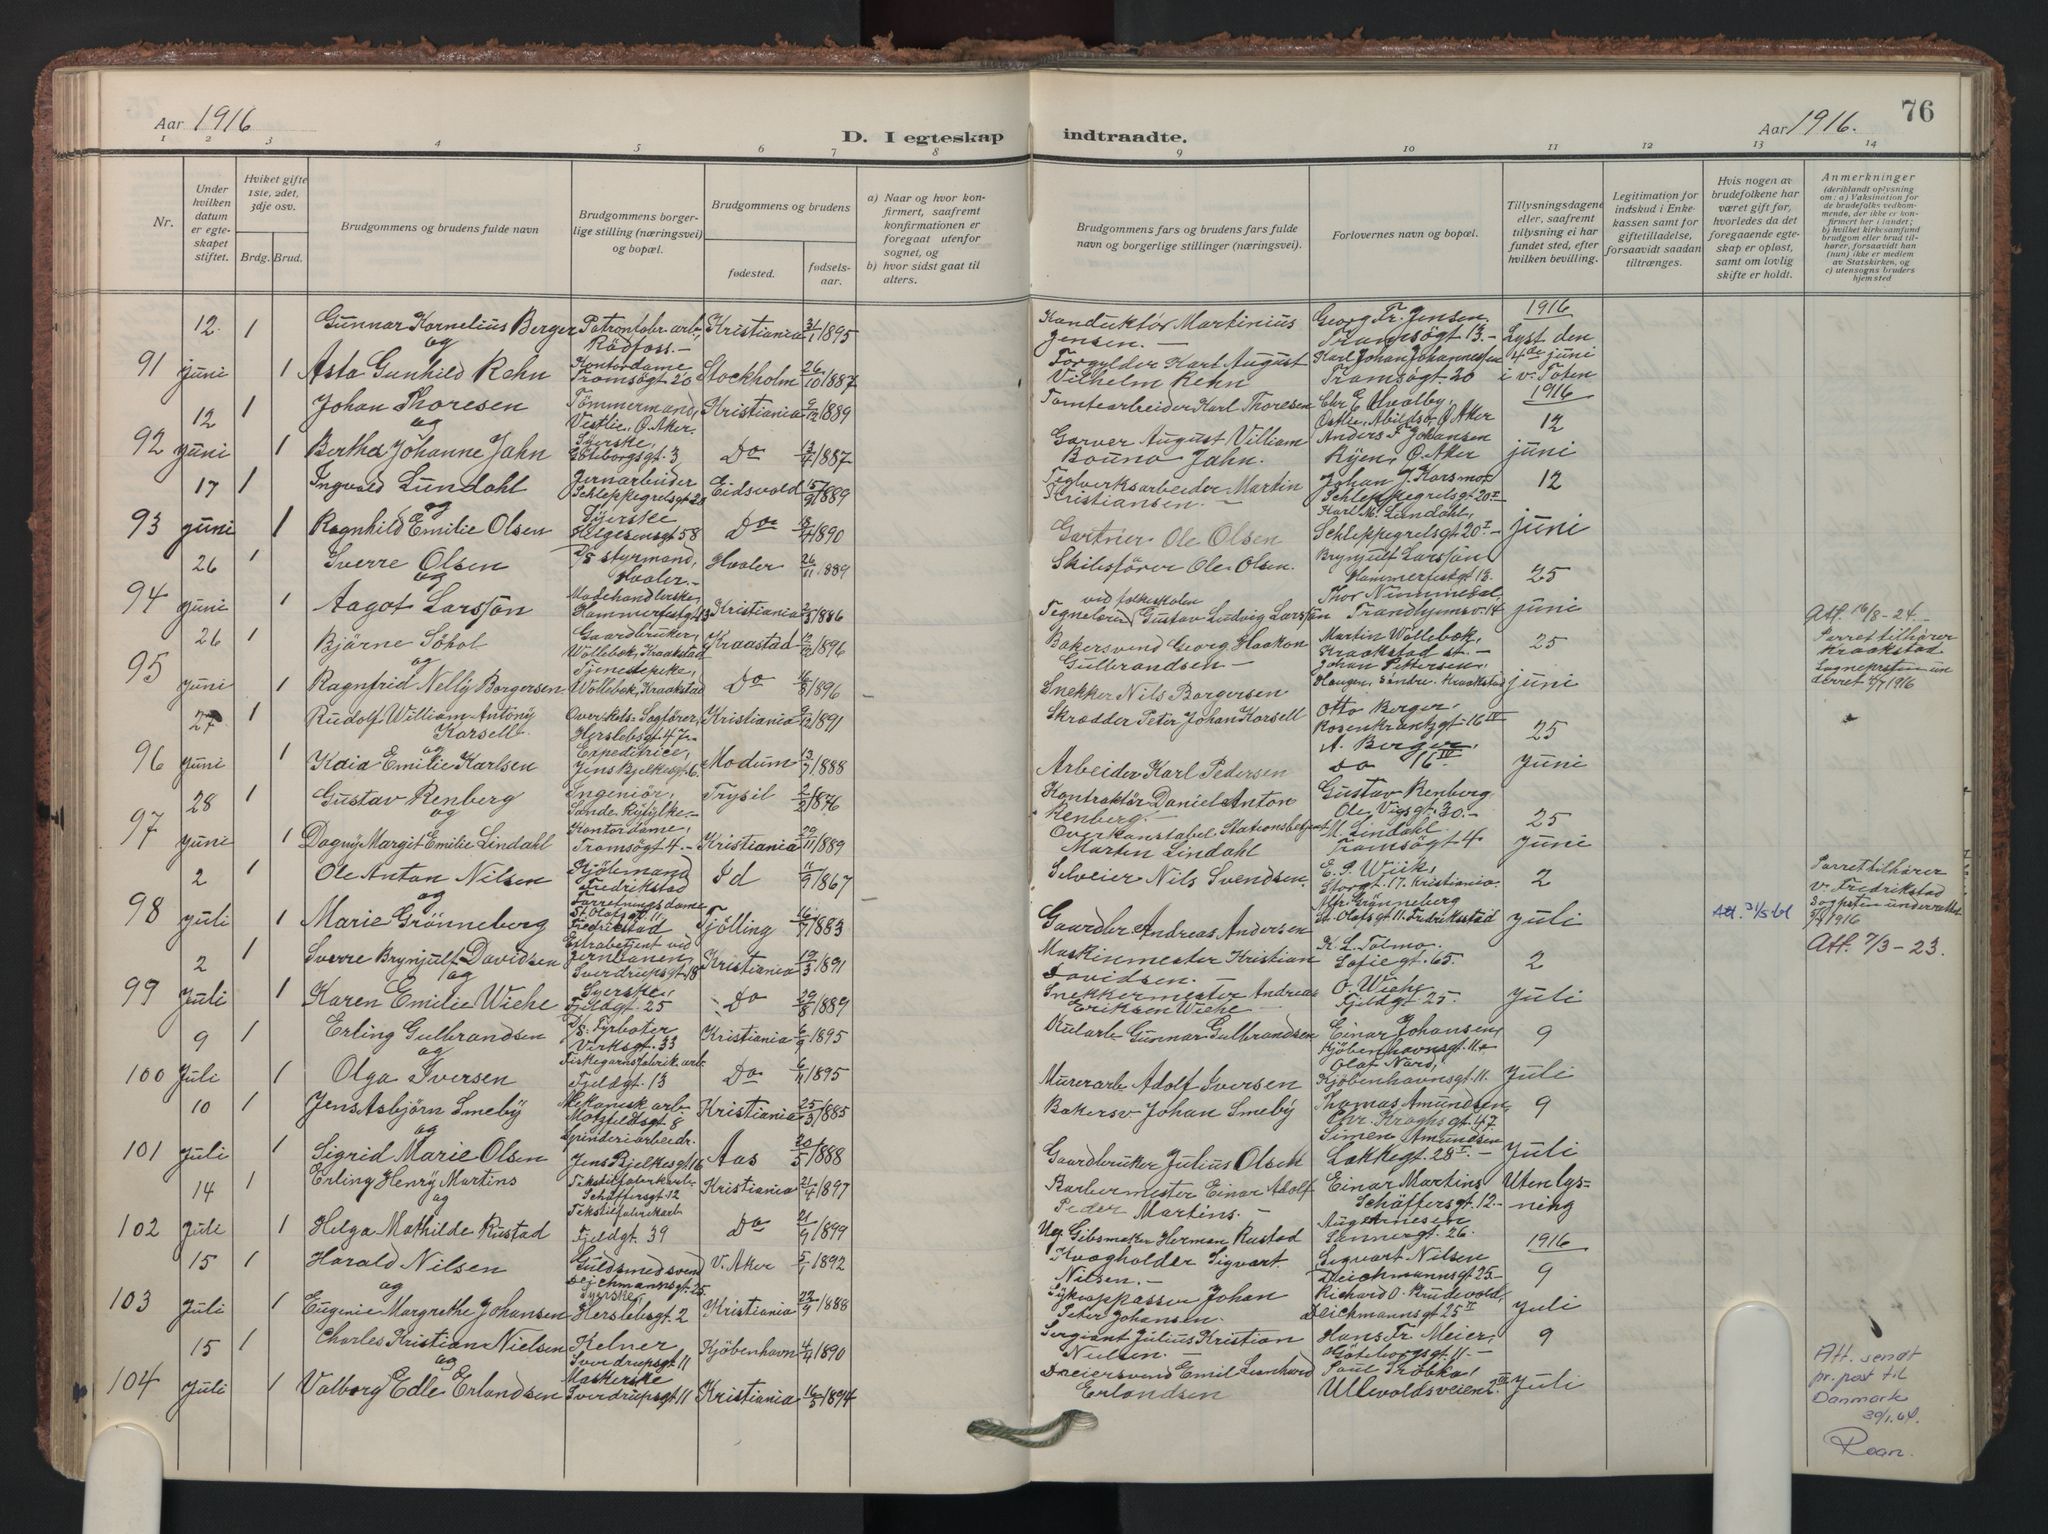 76
Aar 1916
D. I egteskap indtraadte.
Aar 1916.
1 2 3 4 5 6 7 8 9 10 11 12 13 14
Nr.
Under hvilken datum er egteskapet stiftet.
Hviket gifte 1ste, 2det, 3dje osv.
Brdg. Brud.
Brudgommens og brudens fulde navn
Brudgommens borgerlige stilling (næringsvei) og bopæl.
Brudgommens og brudens
fødested.
fødselsaar.
a) Naar og hvor konfirmert, saafremt konfirmationen er foregaat utenfor sognet, og
b) hvor sidst gaat til alters.
Brudgommens fars og brudens fars fulde navn og borgerlige stillinger (næringsvei).
Forlovernes navn og bopæl.
Tillysningsdagene eller, saafremt tillysning ei har fundet sted, efter hvilken bevilling.
Legitimation for indskud i Enkekassen samt for giftetilladelse, forsaavidt saadan tiltrænges.
Hvis nogen av brudefolkene har været gift før, hvorledes da det foregaaende egteskap er opløst, samt om lovlig skifte er holdt.
Anmerkninger
(deriblandt oplysning om: a) Vaksination for de brudefolks vedkommende, der ikke er konfirmert her i landet; b) hvilket kirkesamfund brudgom eller brud tilhører, forsaavidt han (hun) ikke er medlem av Statskirken, og c) utensogns bruders hjemsted
91 12 juni 1 Gunnar Kornelius Berger Patronfabr. arb., Rödfoss.- Kristiania 31/1 1895 Konduktör Martinius Jensen.- Georg Fr. Jensen. Tromsögt 13.- 1916 Lyst den 4de juni i v. Toten
og
1 Asta Gunhild Rehn Kontordame Tromsögt 20 Stockholm 26/10 1887 Forgylder Karl August Vilhelm Rehn Karl Johan Johannessen Tromsögt. 20
92 12 juni 1 Johan Thoresen Tömmermand, Vestlie, Ö. Aker. Kristiania 9/12 1889 Tomtearbeider Karl Thoresen Chr E Ulvalby, Östlie, Abildsö, Ö Aker 1916 12 juni
og
1 Bertha Johanne Jahn Syerske, Göteborgsgt. 3 Do 13/4 1887 Garver August Villiam Bruno Jahn. Anders J Johansen Ryen, Ö. Aker
93 17 juni 1 Ingvald Lundahl Jernarbeider Schleppegrelsgt 20 Eidsvold 15/9 1889 Teglverksarbeider Martin Kristiansen.- Johan J. Korsmo, Schleppegrelsgt 20 I 12 juni
og
1 Ragnhild Emilie Olsen Syerske Helgesensgt 58 Do 1890 Gartner Ole Olsen Karl M. Lundahl, Schleppegrelsgt 20 I -
94 26 juni 1 Sverre Olsen D/s styrmand, Hvaler.- Hvaler 26/11 1889 Skibsförer Ole Olsen. Brynjulf Larssön Hammerfestgt 13. 25 juni
og
1 Aagot Larssön Modehandlerske, Hammerfestgt 13 Kristiania 2/3 1886 Tegnelærer ved folkeskolen Gustav Ludvig Larssön Thor Nummedal, Trondhjemsv. 14
95 26 juni 1 Bjarne Söhol Gaardbruker, Wöllebæk, Kraakstad Kraakstad 12/12 1896 Bakersvend Georg Haakon Gulbrandsen - Martin Wöllebæk, Kraakstad st.- 25 juni
og
1 Ragnfrid Nelly Borgersen Tjenestepike, Wollebæk, Kraakstad Do 16/8 1896 Snekker Nils Borgersen Johan Pettersen, Haugen, Söndre. Kraakstad
Att. 16/8-24. Parret tilhører Kraakstad Sogneprsten underret 4/7 1916
96 27 juni 1 Rudolf William Antony Korsell Overrets. Sagförer, Herslebsgt 47 Kristiania 9/12 1891 Skrædder Peter Johan Korsell Otto Berger, Rosenkrantzgt. 16 IV 25 juni
og
1 Kaia Emilie Karlsen Expeditrice, Jens Bjelkesgt 6. Modum 13/7 1888 Arbeider Karl Pedersen A. Berger, do 16 IV
97 28 juni 1 Gustav Renberg Ingeniör, Sande. Ryfylke.- Trysil 2/2 1876 Kontraktör Daniel Anton Renberg.- Gustav Renberg, Ole Vigsgt. 30.- 25 juni
og
1 Dagny Margit Emilie Lindahl Kontordame, Tromsögt 4.- Kristiania 29/11 1889 Overkonstabel Stationsbetjent Marten Lindahl M. Lindahl. Tromsögt 4
98 2 juli 1 Ole Anton Nilsen Kjölemand, Fredrikstad Id 11/9 1867 Selveier Nils Svendsen. E. P. Wiik, Storgt. 17. Kristiania 2 juli
og
1 Marie Grönneberg Forretningsdame St. Olafsgt 11, Fredrikstad Tjölling 16/7 1883 Gaardbr Andreas Andersen Mfr. Grönneberg St. Olafsgt 11. Fredriksstad
Parret tilhører v. Fredrikstad Sogpsten underrettet 1916
Att. 7/3-23.
99 2 juli 1 Sverre Brynjulf Davidsen Extrabetjent ved jernbanen, Sverdrupsgt. 18 Kristiania 19/3 1891 Maskinmester Kristian Davidsen. K. L. Tolmo. Sofiegt. 65. 2 juli
og
1 Karen Emilie Wiehe Syerske, Fjeldgt. 25 Do 29/8 1889 Snekkermester Andreas Eriksen Wiehe O. Wiehe Fjeldgt 25.
100 9 juli 1 Erling Gulbrandsen D/s. Fyrböter Verksgt. 33 Kristiania 6/9 1895 Kularb. Gunnar Gulbrandsen Einar Johansen, Kjöbenhavnsgt. 11. 9 juli
og
1 Olga Iversen Fiskegarnsfabrik. arb Fjeldgt. 13 Do 1895 Murerarb Adolf Iversen Olaf Nård, Kjöbenhavnsgt. 11.
101 10 juli 1 Jens Asbjörn Smeby Mekanisk arb Motzfeldsgt 8 Kristiania 25/3 1885 Bakersv Johan Smeby Thomas Amundsen, Chr. Kroghsgt. 47. 9 juli
og
1 Sigrid Marie Olsen Spinderiarbeidr. Jens Bjelkesgt 16 Aas 20/5 1888 Gaardbruker Julius Olsen Simen Amundsen Lakkegt. 28 I.-
102 14 juli 1 Erling Henry Martins Tekstilfabrikarb. Schäffersgt. 12 Kristiania 21/4 1897 Barbermester Einar Adolf Peder Martins.- Einar Martins Schäffersgt. 12.- Uten lysning
og
1 Helga Mathilde Rustad Tekstilfabrikarb Fjeldgt. 39 Do 21/9 1899 Gibsmaker Herman Rustad Aug Arnesen Sannergt. 26.
103 15 juli 1 Harald Nilsen Guldsmedsvend Deichmannsgt 25. V. Aker 5/1 1892 Kvægholder Sigvart Nilsen.- Sigvart Nilsen Deichmannsgt. 25.- 1916 9 juli
og
1 Eugenie Margrethe Johansen Syerske, Herslebsgt. 2 Kristiania 22/9 1888 Sykepasser Johan Peter Johansen. Richard O. Rudevold, Deichmannsgt 25 II
104 15 juli 1 Charles Kristian Nielsen Kelner Sverdrupsgt 11 Kjöbenhavn 4/4 1890 Sergiant Julius Kristian Nielsen.- Hans Fr. Meier, Göteborgsgt. 11.- 9 juli
og
1 Valborg Edle Erlandsen Maskerske Sverdrupsgt 11 Kristiania 16/5 1894 Dreiersvend Emil Leonhard Erlandsen Ullevoldsveien 2 III
Att. sendt
pr. post til
Danmark
30/1.64.